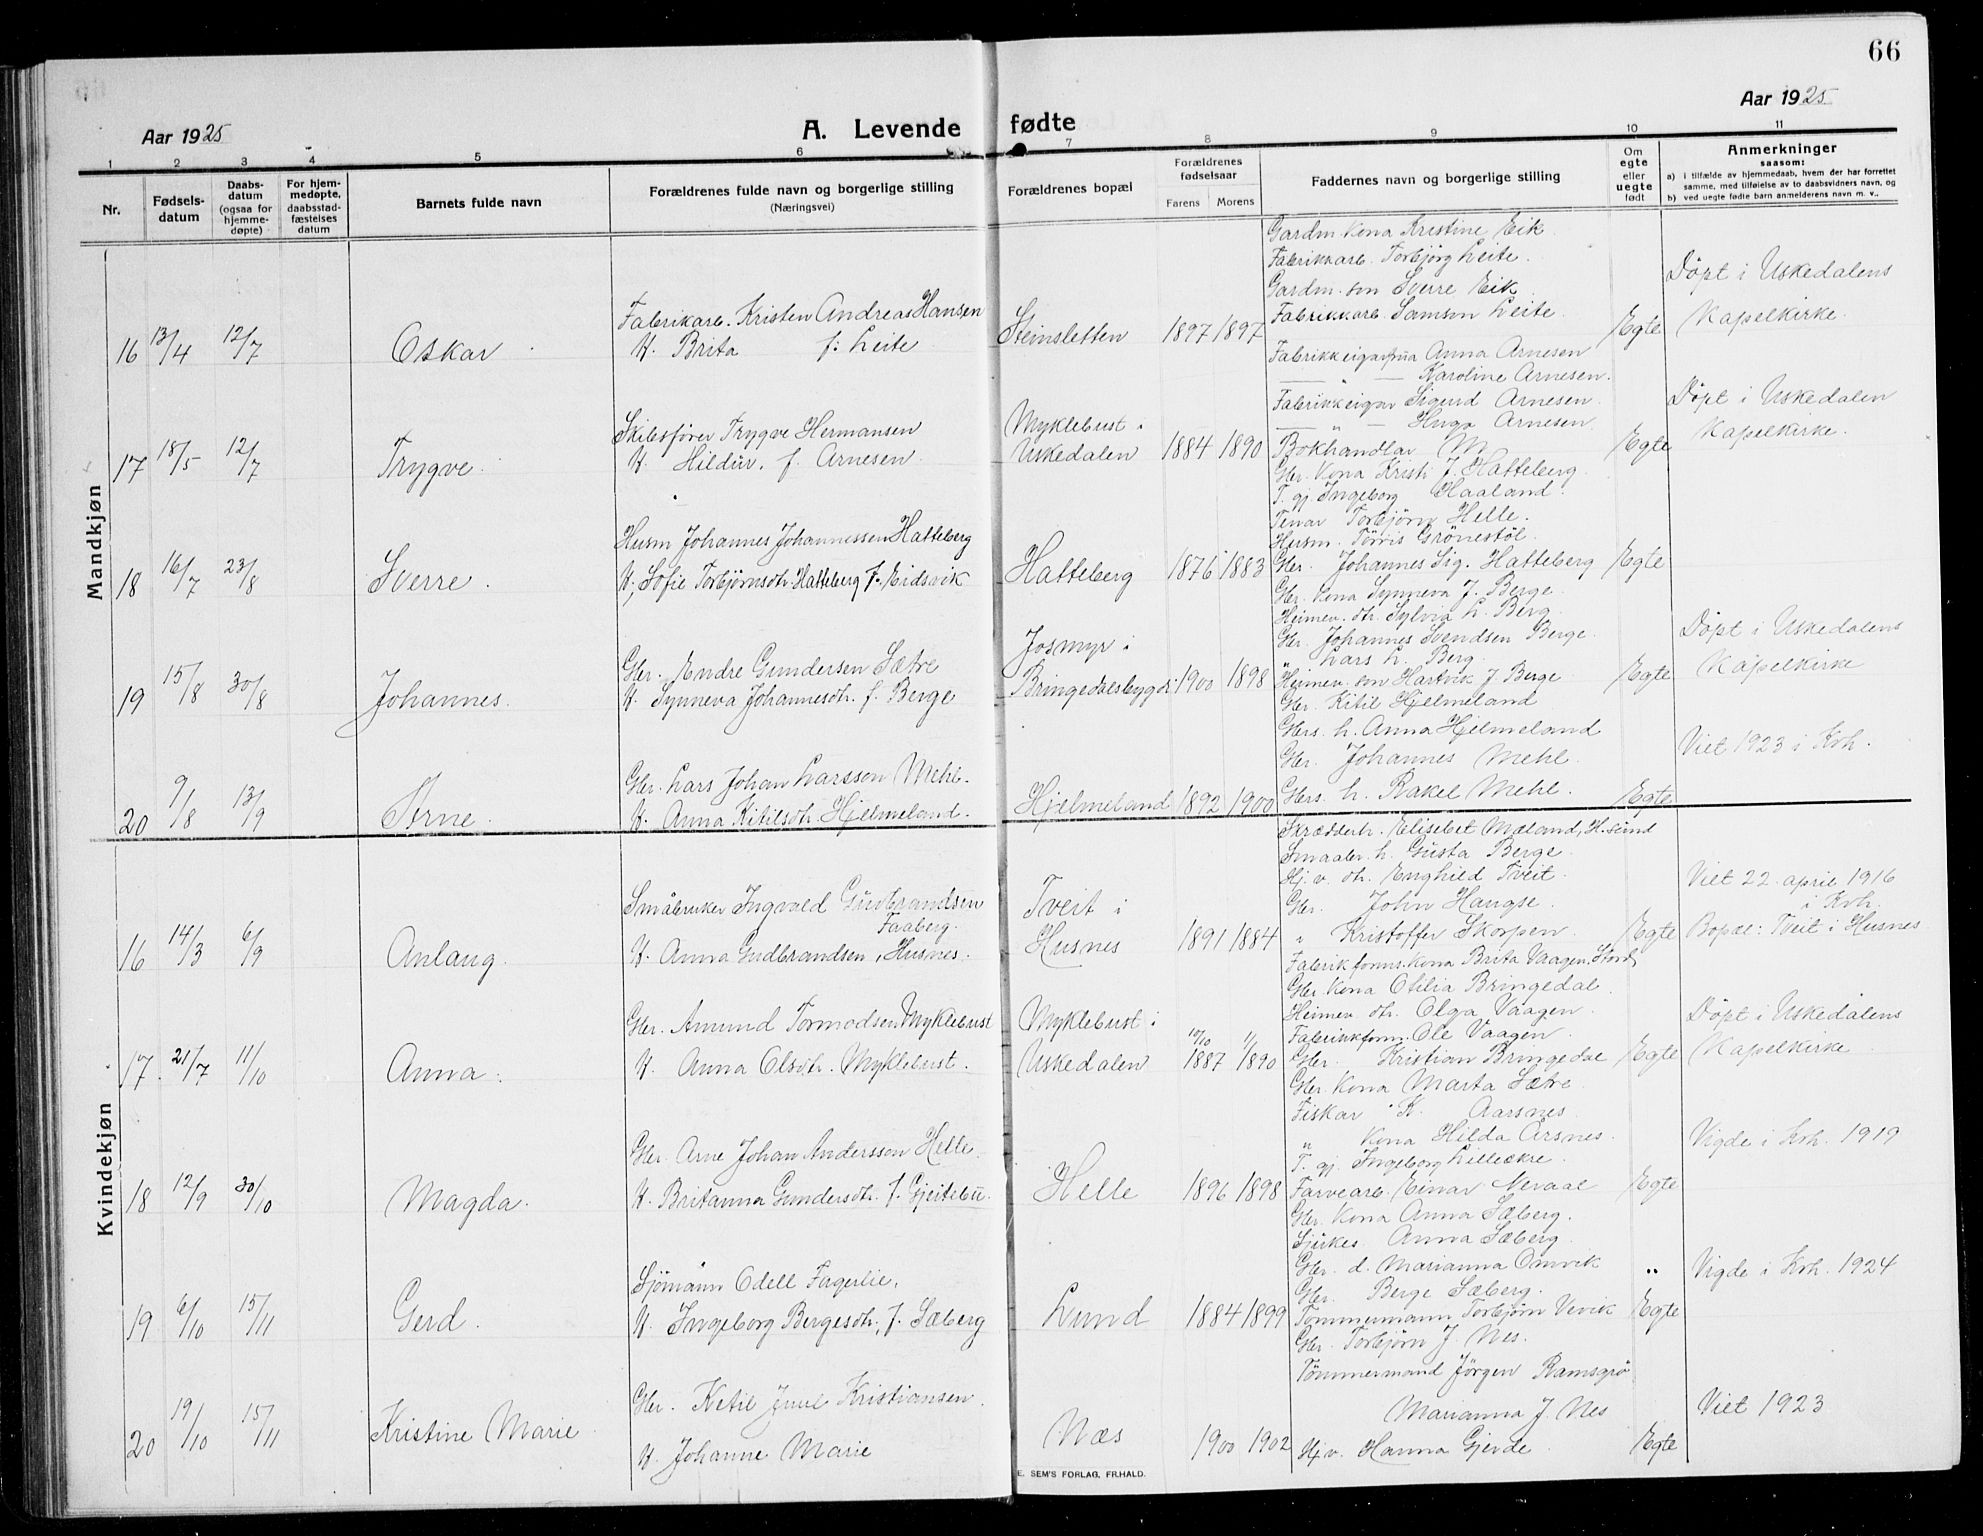 66
Aar 1925
Aar 1925
A. Levende fødte
1 2 3 4 5 6 7 8 9 10 11
Nr.
Fødsels-
datum
Daabs-
datum
(ogsaa for
hjemme-
døpte)
For hjem-
medøpte,
daabsstad-
fæstelses
datum
Barnets fulde navn
Forældrenes fulde navn og borgerlige stilling
(Næringsvei)
Forældrenes bopæl
Forældrenes
fødselsaar
Farens Morens
Faddernes navn og borgerlige stilling
Om
egte
eller
uegte
født
Anmerkninger
saasom:
a) i tilfælde av hjemmedaab, hvem der har forrettet
samme, med tilføielse av to daabsvidners navn, og
b) ved uegte fødte barn anmelderens navn m. v.
Mandkjøn
16 13/4 12/7 Oskar
Fabrikarb. Kristen Andreas Hansen
K. Brita f: Leite
Steinsletten 1897 1897
Gardm. kona Kristine Eik
Fabrikkarb. Torbjörg Leite.
Gardm. son Sverre Eik
Fabrikkarb. Samson Leite
Egte
Döpt i Uskedalens
Kapelkirke.
17 18/5 12/7 Trygve.
Skibsfører Trygve Hermansen
K. Hildur. f. Arnesen
Myklebust i
Uskedalen 1884 1890
Fabrikkeigarfrua Anna Arnesen
— " — Karoline Arnesen.
Fabrikkeigar Sigurd Arnesen.
— " — Hugo Arnesen
Bokhandlar M
Egte
Döpt i Uskedalen
Kapelkirke.
18 16/7 23/8 Sverre.
Husm Johannes Johannessen Hatteberg
K, Sofie Torbjørnsdtr. Hatteberg f. Eidsvik
Hatteberg 1876 1883
Gbr. Kona Kristi J. Hatteberg.
T. gj. Ingeborg Haaland.
Tenar Torbjörn Helle.
Husm. Törris Grönestöl.
Gbr. Johannes Sig. Hatteberg
Egte
19 15/8 30/8 Johannes.
Gbr. Endre Gundersen Sætre
K. Synneva Johannesdtr. f. Berge
Josmyr i
Bringedalsbygdi 1900 1898
Gbr. Kona Synneva J. Berge.
Heimev. dtr. Sylvia L. Berg.
Gbr. Johannes Svendsen Berge.
" Lars L. Berg.
Heimev. son Hartvik J Berge
Egte
Döpt i Uskedalens
Kapelkirke
20 9/8 13/9 Arne.
Gbr. Lars Johan Larsson Mehl.
K. Anna Kitilsdtr. Hjelmeland.
Hjelmeland 1892 1900
Gbr. Kitil Hjelmeland
Gbrs. h. Anna Hjelmeland
Gbr. Johannes Mehl.
Gbrs. h. Rakel Mehl.
Egte
Viet 1923 i Kvh.
Kvindekjøn
16 14/3 6/9 Anlaug.
Småbruker Ingvald Gudbrandsen
Faaberg.
K. Anna Gudbrandsen, Husnes.
Tveit i
Husnes 1891 1884
Skrædderh. Elisebet Mæland, H. sund
Smaabr. h. Gusta Berge.
Hj. v. dtr. Enghild Tveit.
Gbr. John Haugse.
" Kristoffer Skorpen.
Egte
Viet 22. april 1916
i Kvh.
Bopæl: Tveit i Husnes
17. 21/7 11/10 Anna.
Gbr. Amund Tormodsen Myklebust
K. Anna Olsdtr. Myklebust.
Myklebust i
Uskedalen 10/10 1887 1/1 1890
Fabrikform. kona Brita Vaagen, Stord
Gbr. Kona Otilia Bringedal.
Heimev. dtr. Olga Vaagen.
Fabrikkform. Ole Vaagen.
Gbr. Kristian Bringedal
Egte
Döpt i Uskedalens
Kapelkirke
18 12/9 30/10 Magda.
Gbr. Arne Johan Anderssen Helle.
K. Britanna Gundersdtr. f. Gjeitebu.
Helle 1896 1898
Gbr. Kona Marta Sætre.
Fiskar K. Aarsnes.
" Kona Hilda Arsnes.
T. gj. Ingeborg Lilleøkre.
Farvearb. Einar Neraal
Egte
Vigde i Kvh. 1919
19 6/10 15/11 Gerd.
Sjömann Odell Fagerlie.
K. Ingeborg Bergesdtr. f. Sæberg
Lund 1884 1899
Gbr. Kona Anna Sæberg.
Sjukes. Anna Sæberg.
Gbr. d. Marianna Omvik
Gbr. Berge Sæberg.
Tommermann Torbjörn Vevik
Egte
Vigde i Kvh. 1924
20 19/10 15/11 Kristine Marie
Gbr. Ketil Juul Kristiansen.
K. Johanne Marie
Næs 1900 1902
Gbr. Torbjörn J. Nes.
Tömmermand Jörgen Ramsgrö
Marianna J. Nes
Hj. v. Hanna Gjerde
Egte
Viet 1923
E. SEM'S FORLAG, FR.HALD.